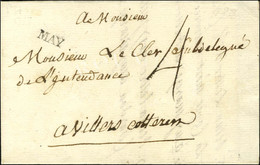 A Monsieur
MAY
Monsieur Le Cler subdelegué 4
de L'intendance
a Villers cotterets